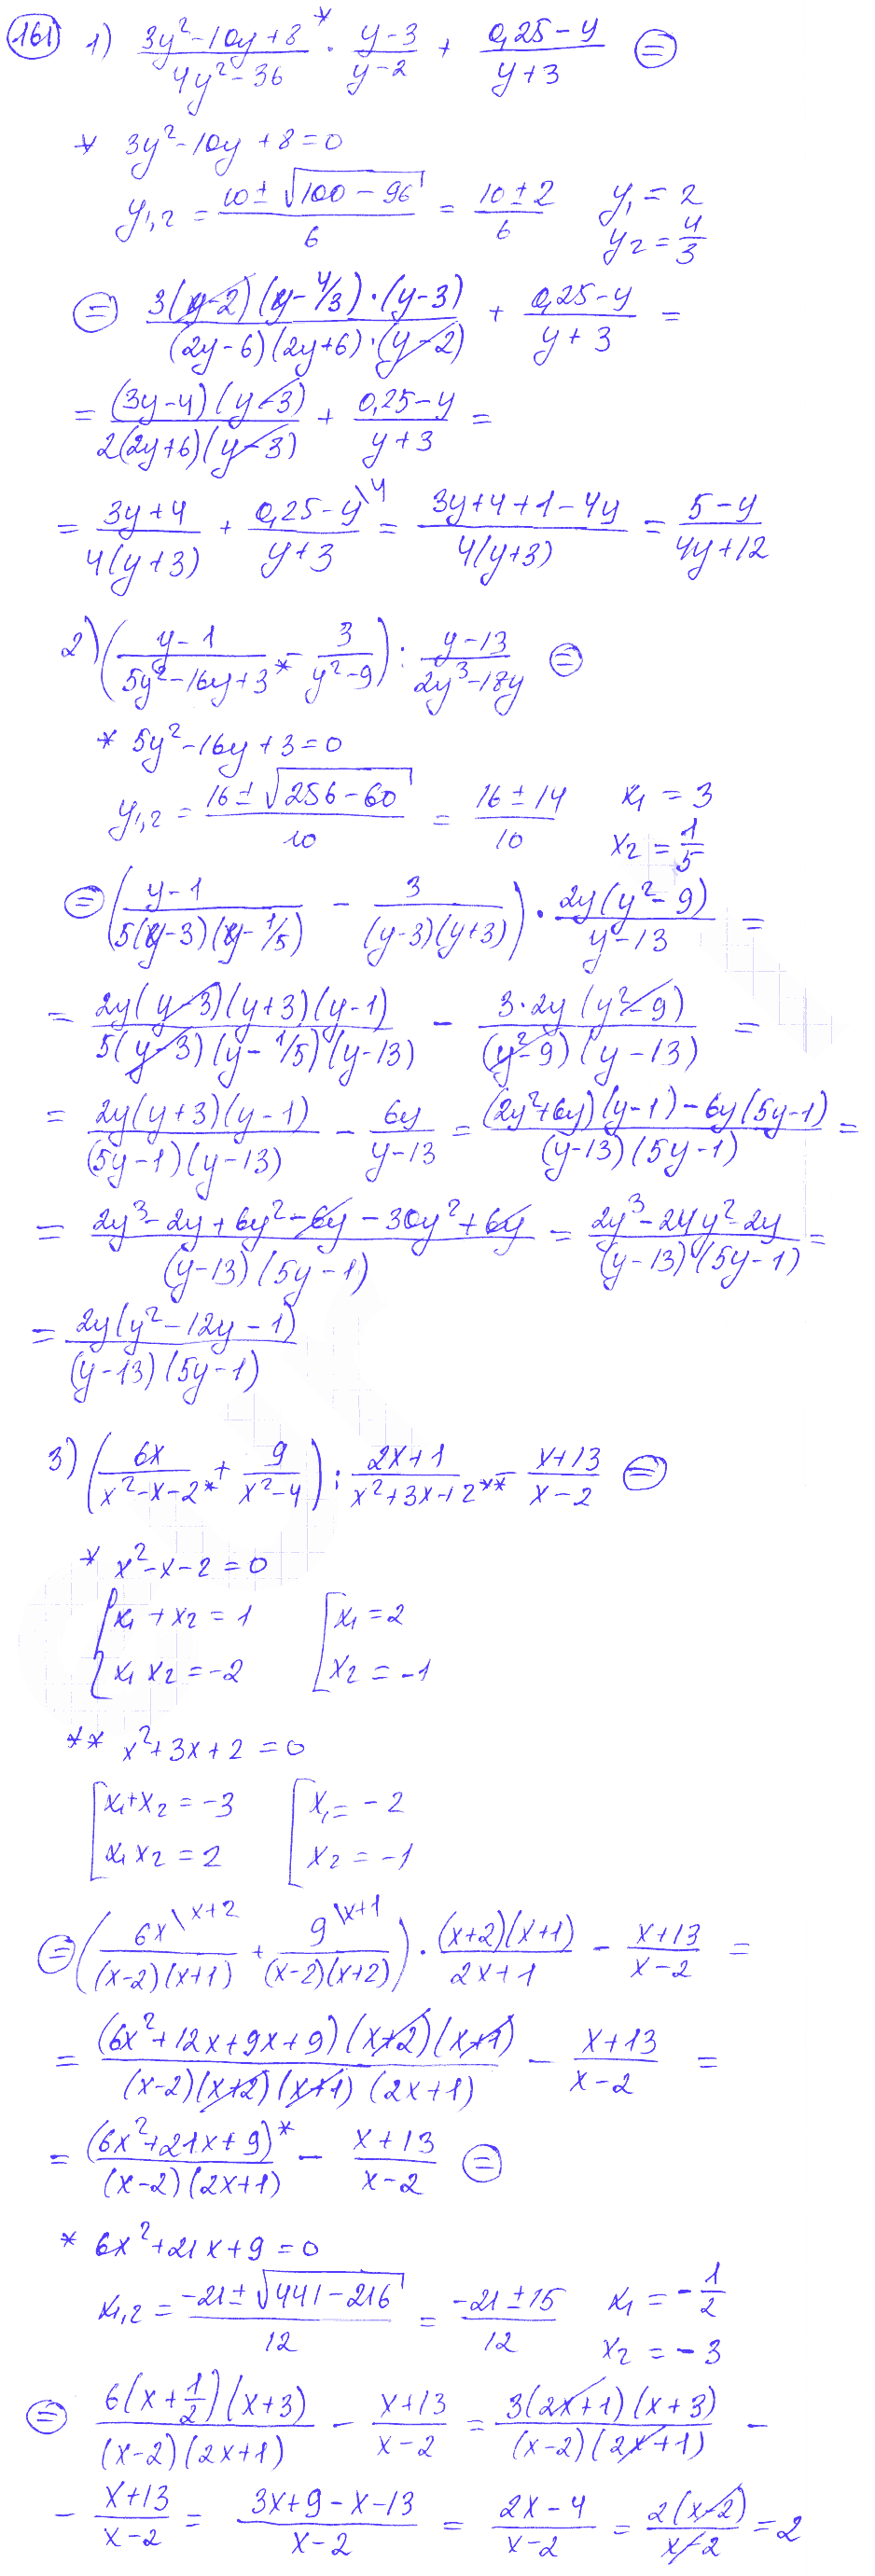 161 1) (3y²-10y+8)*/(4y²-36) · (y-3)/(y-2) + (0,25-y)/(y+3) (=)
* 3y²-10y+8=0
y1,2 = (10±√(100-96))/6 = (10±2)/6 y1=2
y2=4/3
(=) (3(y-2)(y-4/3)·(y-3))/((2y-6)(2y+6)·(y-2)) + (0,25-y)/(y+3) =
= ((3y-4)(y-3))/(2(2y+6)(y-3)) + (0,25-y)/(y+3) =
= (3y+4)/(4(y+3)) + (0,25-y\4)/(y+3) = (3y+4+1-4y)/(4(y+3)) = (5-y)/(4y+12)
2) ((y-1)/(5y²-16y+3*) - 3/(y²-9)) : (y-13)/(2y³-18y) (=)
* 5y²-16y+3=0
y1,2 = (16±√(256-60))/10 = (16±14)/10 x1=3
x2=1/5
(=) ((y-1)/(5(y-3)(y-1/5)) - 3/((y-3)(y+3))) · (2y(y²-9))/(y-13) =
= (2y(y-3)(y+3)(y-1))/(5(y-3)(y-1/5)(y-13)) - (3·2y(y²-9))/((y²-9)(y-13)) =
= (2y(y+3)(y-1))/((5y-1)(y-13)) - 6y/(y-13) = ((2y²+6y)(y-1)-6y(5y-1))/((y-13)(5y-1)) =
= (2y³-2y+6y²-6y-30y²+6y)/((y-13)(5y-1)) = (2y³-24y²-2y)/((y-13)(5y-1)) =
= (2y(y²-12y-1))/((y-13)(5y-1))
3) (6x/(x²-x-2*) + 9/(x²-4)) : (2x+1)/(x²+3x+2**) - (x+13)/(x-2) (=)
* x²-x-2=0
{x1+x2=1 [x1=2
x1x2=-2 x2=-1
** x²+3x+2=0
[x1+x2=-3 [x1=-2
x1x2=2 x2=-1
(=) (6x\x+2/((x-2)(x+1)) + 9\x+1/((x-2)(x+2))) · ((x+2)(x+1))/(2x+1) - (x+13)/(x-2) =
= ((6x²+12x+9x+9)(x+2)(x+1))/((x-2)(x+2)(x+1)(2x+1)) - (x+13)/(x-2) =
= (6x²+21x+9)*/((x-2)(2x+1)) - (x+13)/(x-2) (=)
* 6x²+21x+9=0
x1,2 = (-21±√(441-216))/12 = (-21±15)/12 x1=-1/2
x2=-3
(=) (6(x+1/2)(x+3))/((x-2)(2x+1)) - (x+13)/(x-2) = (3(2x+1)(x+3))/((x-2)(2x+1)) -
- (x+13)/(x-2) = (3x+9-x-13)/(x-2) = (2x-4)/(x-2) = (2(x-2))/(x-2) = 2